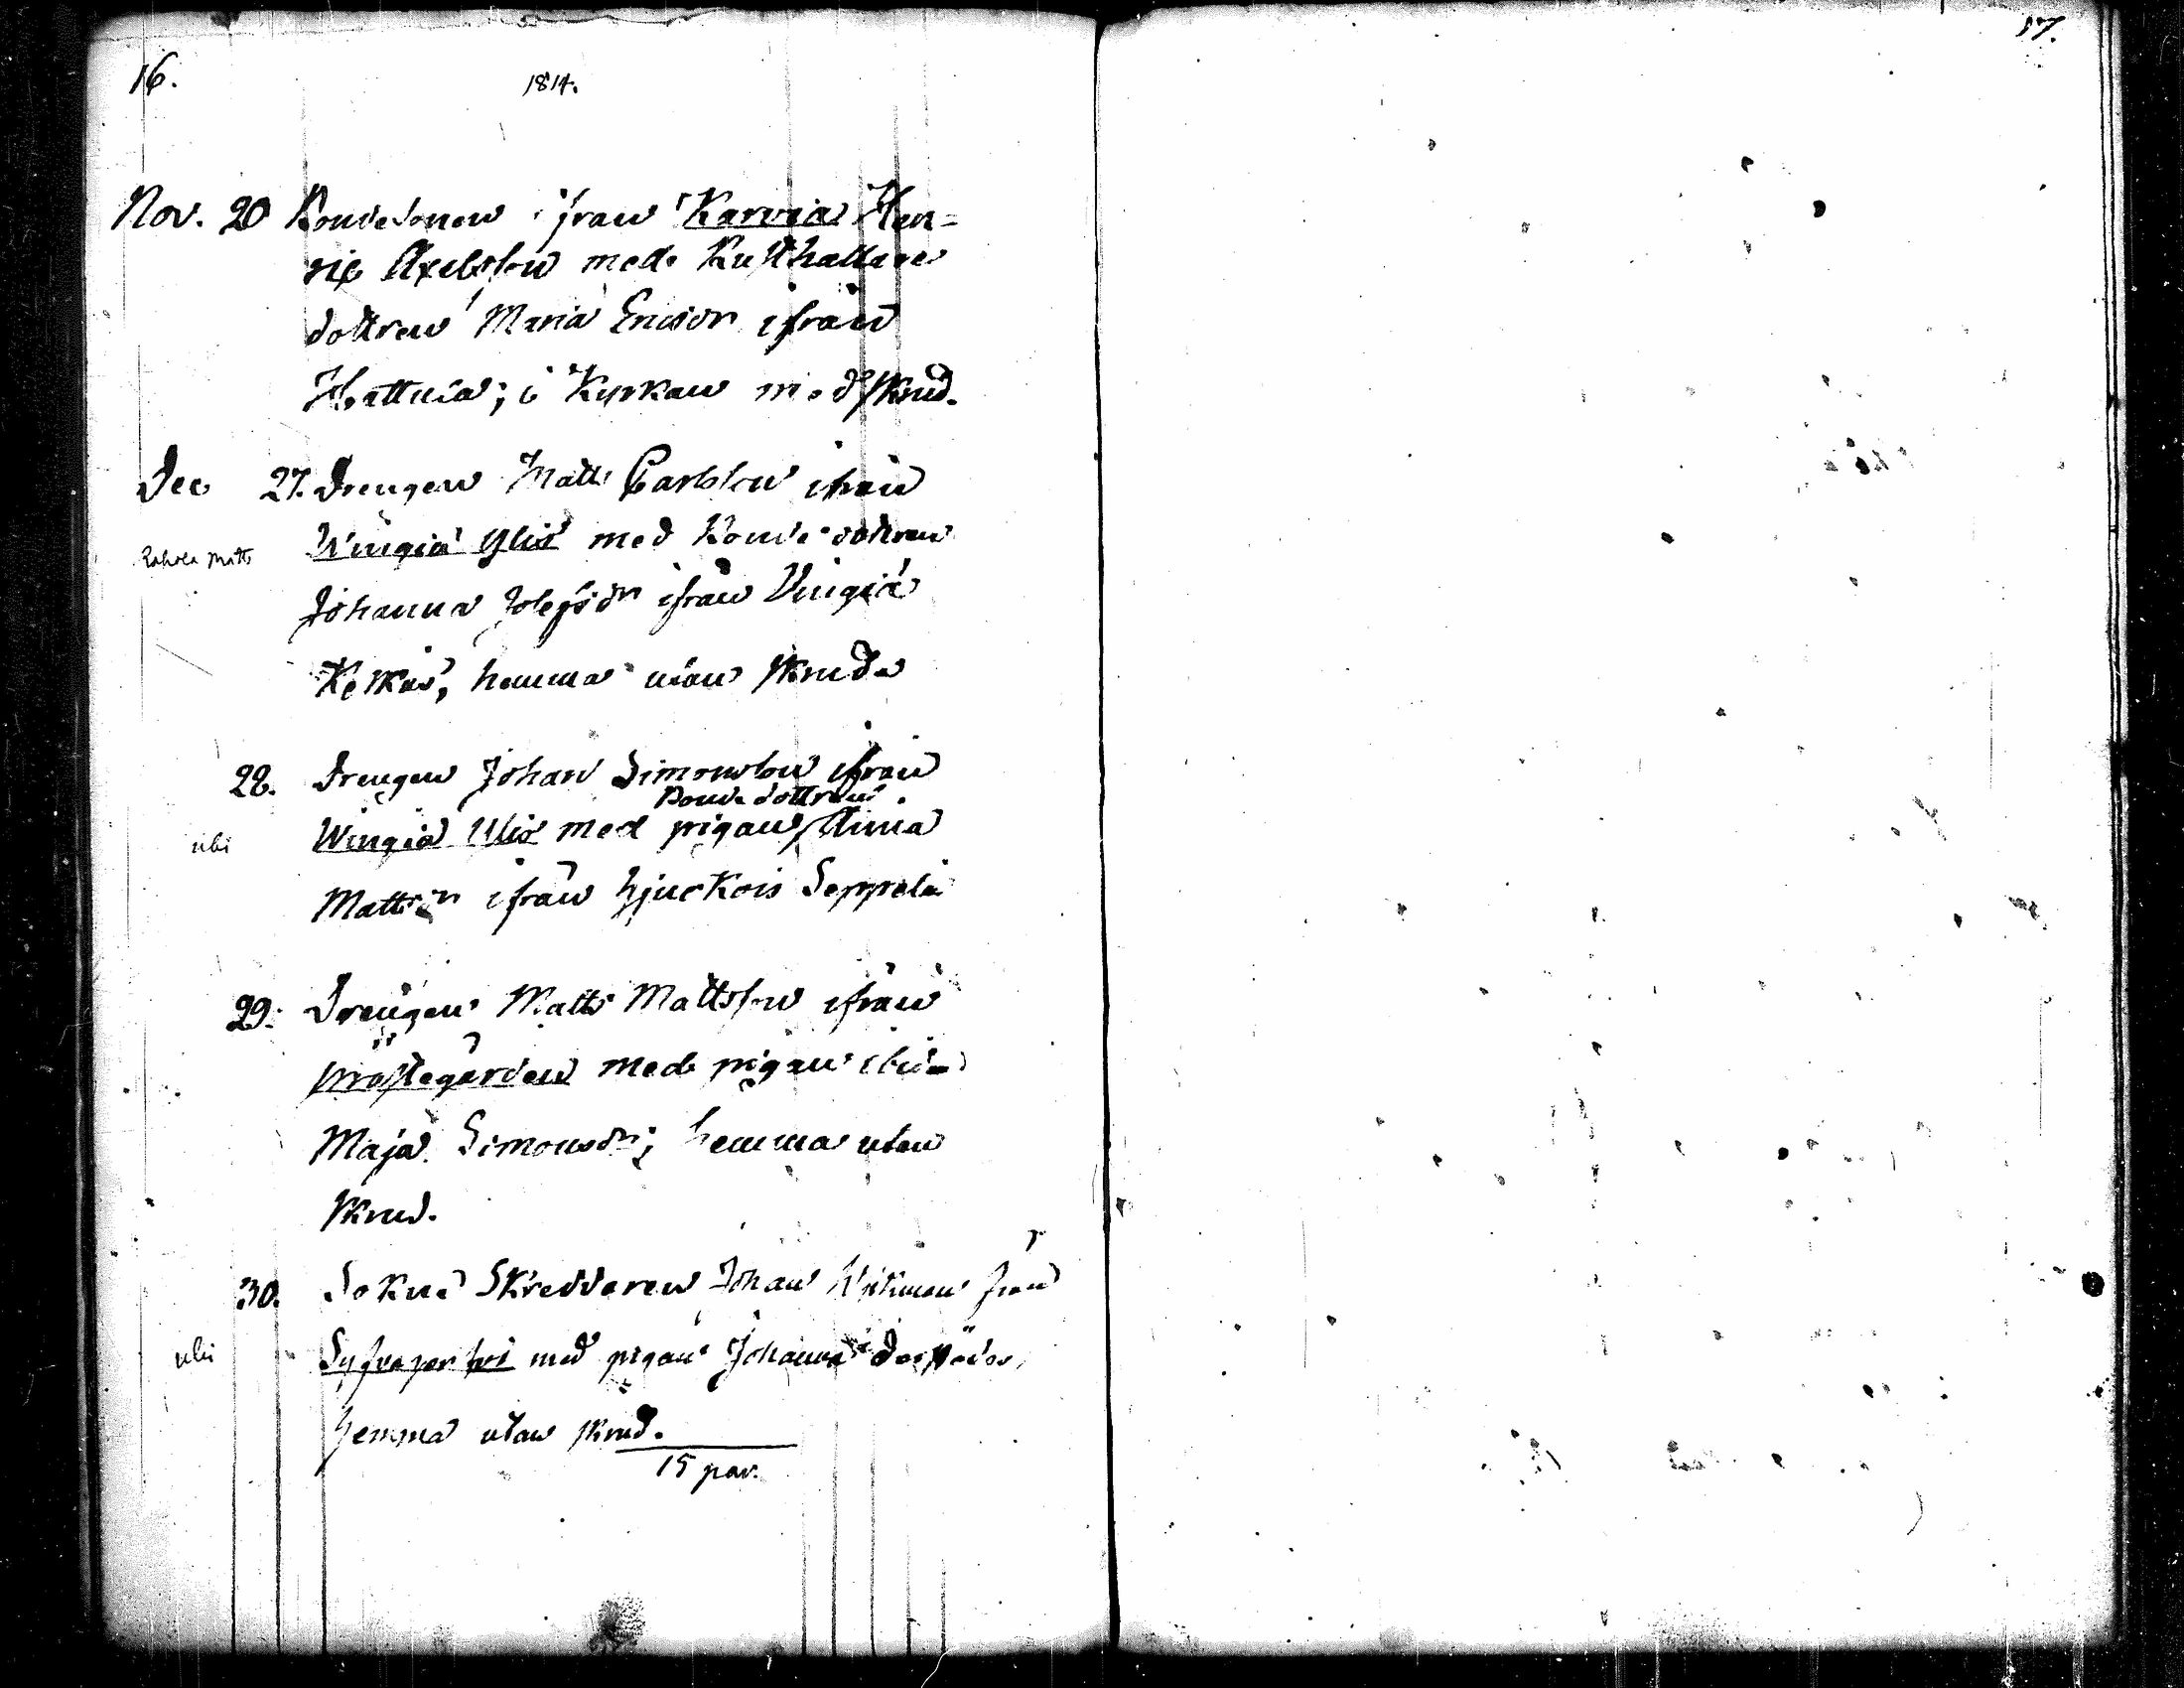 16.
1814.
17.
Nov. 20 Bondesonen ifrån Karvia Hen=
ric Axelsson med Rusthållare
dottren Maria Ericsdr ifrån
Hattula; i Kyrkan med skrud.
Dec 27. Drengen Matts Carlsson ifrån
Rahola Matts
Wingiä Ylis med Bonde dottren
Johanna Josefsdr ifrån Vingiä
Keskis, hemma utan skrud
28. Drengen Johan Simonsson ifrån
Bonde dottren
ubi Wingiä Ylis med pigan Anna
Mattsdr ifrån Seppelä
29. Drengen Matts Mattsson ifrån
prästegården med pigan ibid.
Maja Simonsdr; hemma utan
skrud.
30. Sokne Skreddaren Johan Wikman från
ubi med pigan Johanna
hemma utan skrud.
15 par.